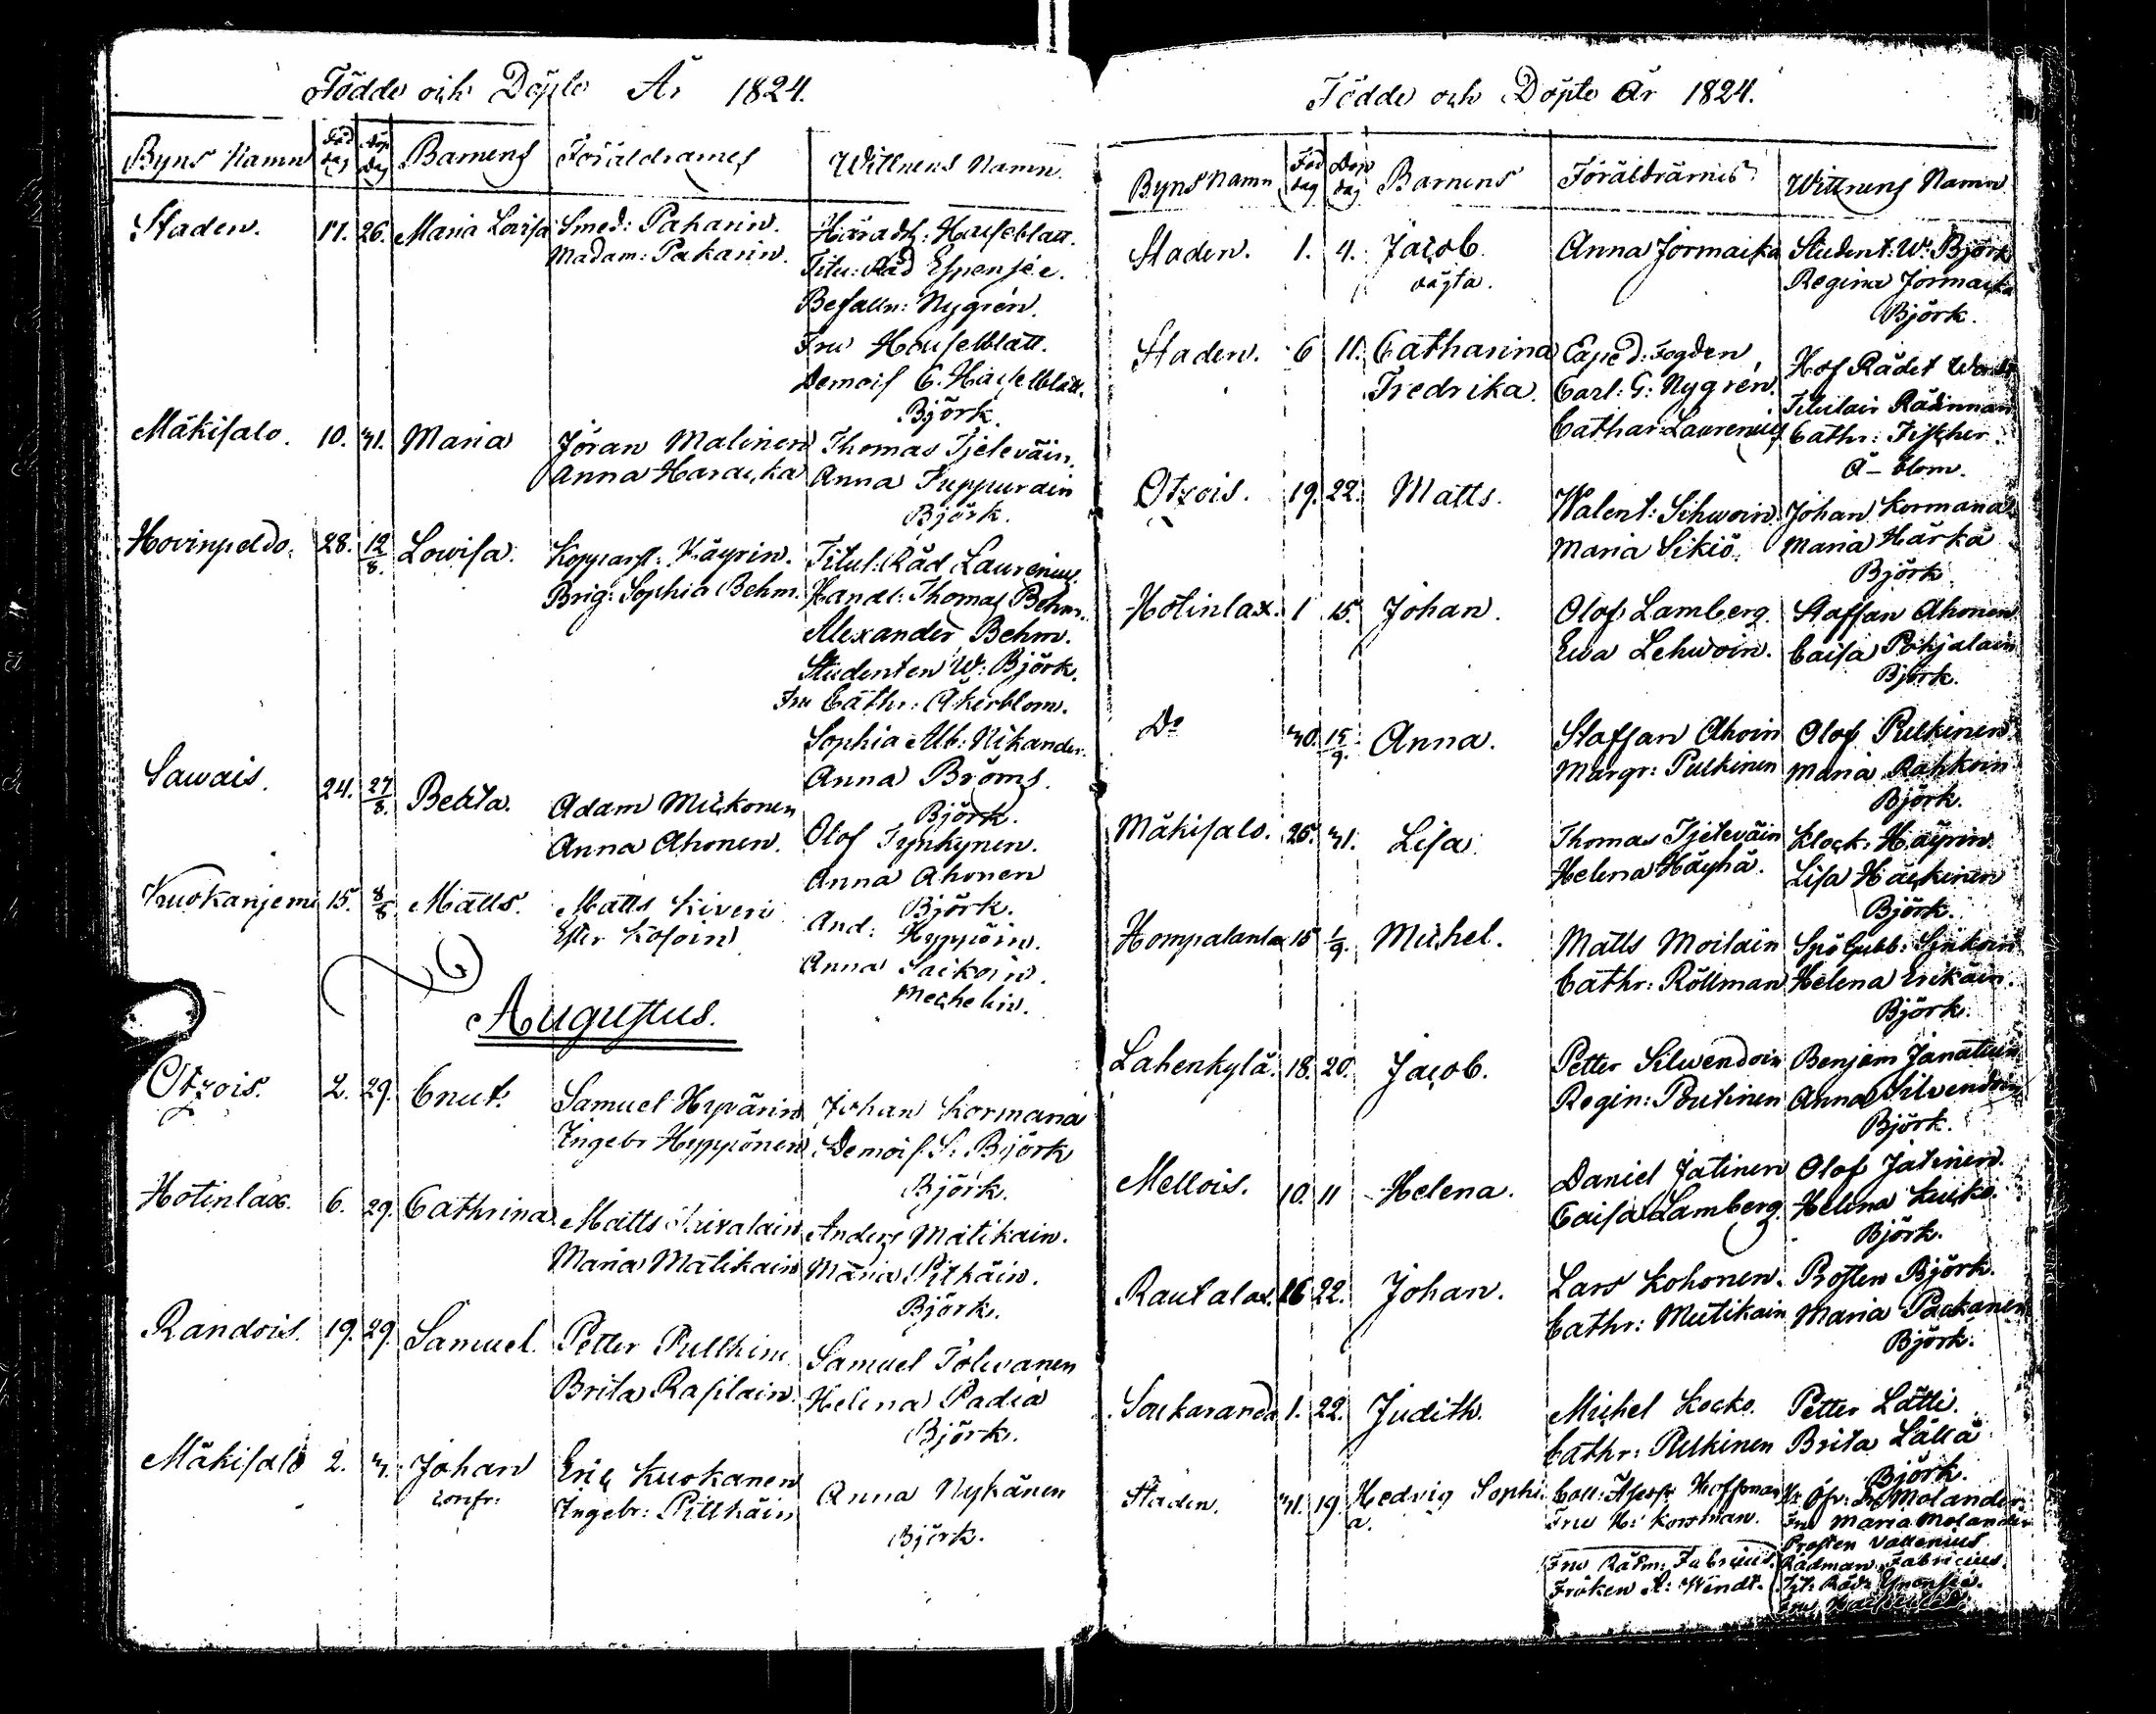 Födde och Döpte År 1824.
Byns Namn Föd dag Döp dag Barnens Föräldrarnes Wittnens Namn.
Staden. 17. 26. Maria Lovisa Smed: Pakarin. Häradsh: Hauselblatt.
Madam: Pakarin. Titu: Råd Espensée.
Befalln: Nygrén.
Fru Hauselblatt.
Demois C. Hauselblatt.
Björk.
Mäkisalo. 10. 31. Maria Jöran Malinen Thomas Tjeleväin.
Anna Haracka Anna Tuppurain
Björk.
Hovinpeldo. 28. 12/8. Lowisa. Kopparsl: Käyrin. Titul: Råd Laurenius.
Brig: Sophia Behm. Handl: Thomas Behm.
Alexander Behm.
Studenten W: Björk.
Fru Cathr: Åkerblom.
Sophia Alb: Nikander.
Anna Broms.
Björk.
Sawais. 24. 27/8. Beata. Adam Mickonen Olof Tynkynen.
Anna Ahonen. Anna Ahonen
Björk.
Kuokanjemi 15. 8/8. Matts. Matts Kiveri And: Hyppöin.
Ester Kosoin Anna Saikoin.
Mechelin.
Augustus.
Otzois. 2. 29. Cnut. Samuel Hyvärin Johan Kormana
Ingebr Hyppönen Demois S. Björk
Björk.
Hotinlax. 6. 29. Cathrina Matts Anders Matikain.
Maria Matikain Maria Pitkäin.
Björk.
Randois. 19. 29. Samuel. Petter Samuel Tolwanen
Brita Rasilain. Helena Padia
Björk.
Mäkisalo 2. 3. Johan Eric Kuokanen Anna Nykänen
confr: Ingebr: Pittkäin
Björk.
Födde och Döpte År 1824.
Byns Namn Föd dag Döp dag Barnens Föräldrarnes Wittnens Namn
Staden. 1. 4. Jacob Anna Jormaika Student: W: Björk
oägta. Regina Jormaika
Björk.
Staden. 6 11. Catharina Exped: Fogden Hof Rådet
Fredrika. Carl: G: Nygrén. Titulair Rådinnan
Cathar: Laurenius Cathr: Fischer.
Å–blom.
Otzois. 19. 22. Matts. Walent: Sihwoin Johan Kormana
Maria Sikiö. Maria Härkä
Björk
Hotinlax. 1 15. Johan. Olof Lamberg. Staffan Ahonen
Ewa Lehwoin. Caisa Pohjalain
Björk.
Do 30. 15/9. Anna. Staffan Ahoin Olof Pulkinen
Margr: Pulkinen Maria Rahkoin
Björk.
Mäkisalo. 25. 31. Lisa. Thomas Tjeleväin Klock: Häyrin
Helena Häyhä. Lisa Häckinen
Björk.
Hompalanlax 15 1/9. Michel. Matts Moilain Spögubb: Synkoin
Cathr: Röllman Helena Erikäin.
Björk.
Lahenkylä. 18. 20. Jacob. Petter Silwendoin Benjam Janatuin
Regin: Poutinen Anna Silvendoin
Björk.
Mellois. 10. 11 Helena. Daniel Jatinen Olof Jatinen.
Caisa Lamberg. Helena Kucko.
Björk.
Rautalax. 16 22. Johan. Lars Kohonen. Prosten Björk.
Cathr: Mutikain Maria Paukanen
Björk.
Soukaranda 1. 22. Judith. Michel Kocko. Petter Lätti.
Cathr: Pulkinen Brita Lällä
Björk.
Staden. 31. 19. Hedvig Sophi- Coll: Assess: Hoffman Hr Öfv: Molander
a. Fru H: Korsman. Fru Maria Molander
Prosten Vallenius
Fru Rådm: Fabricius. Rådman Fabricius.
Fröken A: Windt. Tit: Råd: Espensée.
Fru